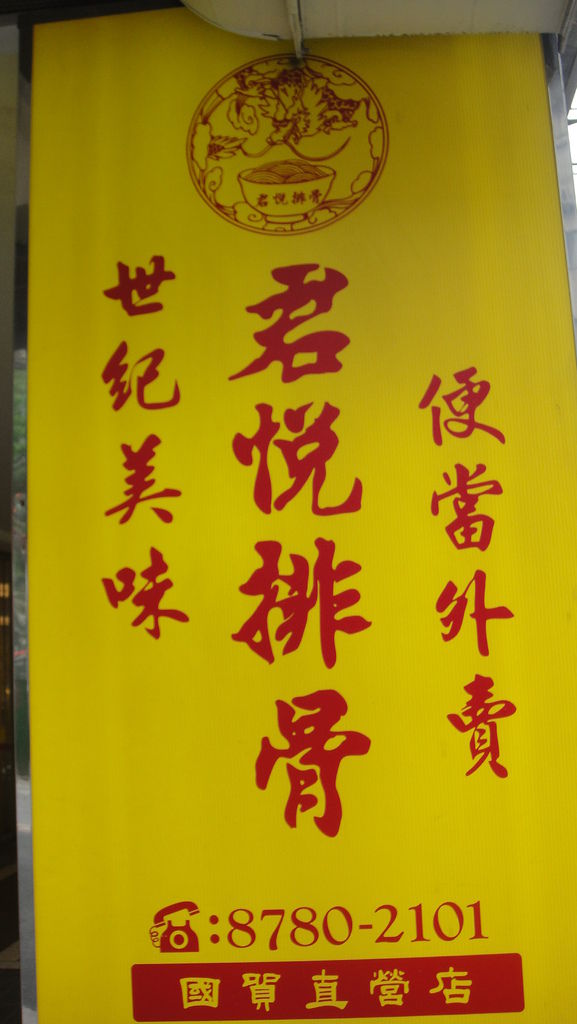 君悅排骨
便當外賣
君悅排骨
世紀美味
:8780-2101
國賀直營店